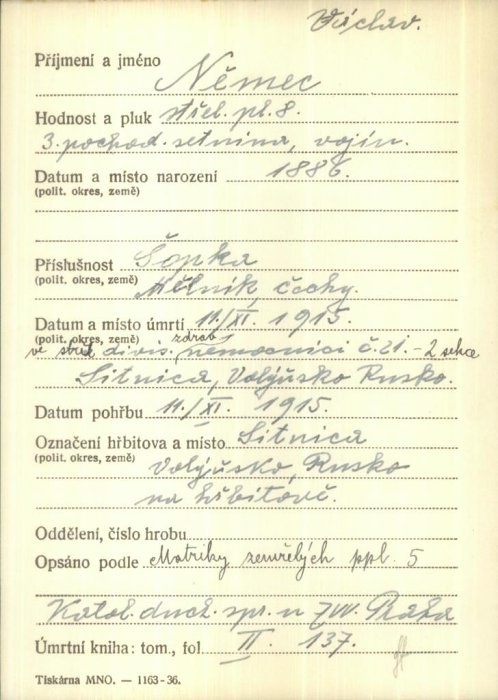 Václav.
Příjmení a jméno
Němec
Hodnost a pluk střel. pl. 8.
3. pochod. setnina, vojín.
Datum a místo narození 1886.
(polit. okres, země)
Příslušnost Šopka
(polit. okres, země) Mělník, Čechy.
Datum a místo úmrtí 11./XI. 1915.
(polit. okres, země) zdrav
ve střel divis. nemocnici č. 21. - 2 sekce
Sitnica, Volýňsko Rusko.
Datum pohřbu 11./XI. 1915.
Označení hřbitova a místo Sitnica
(polit. okres, země)
Volýňsko, Rusko
na hřbitově.
Oddělení, číslo hrobu
Opsáno podle Matriky zemřelých ppl. 5
Katol. duch. spr. u ZVV. Praha
Úmrtní kniha: tom., fol II. 137.
Tiskárna MNO. — 1163-36.